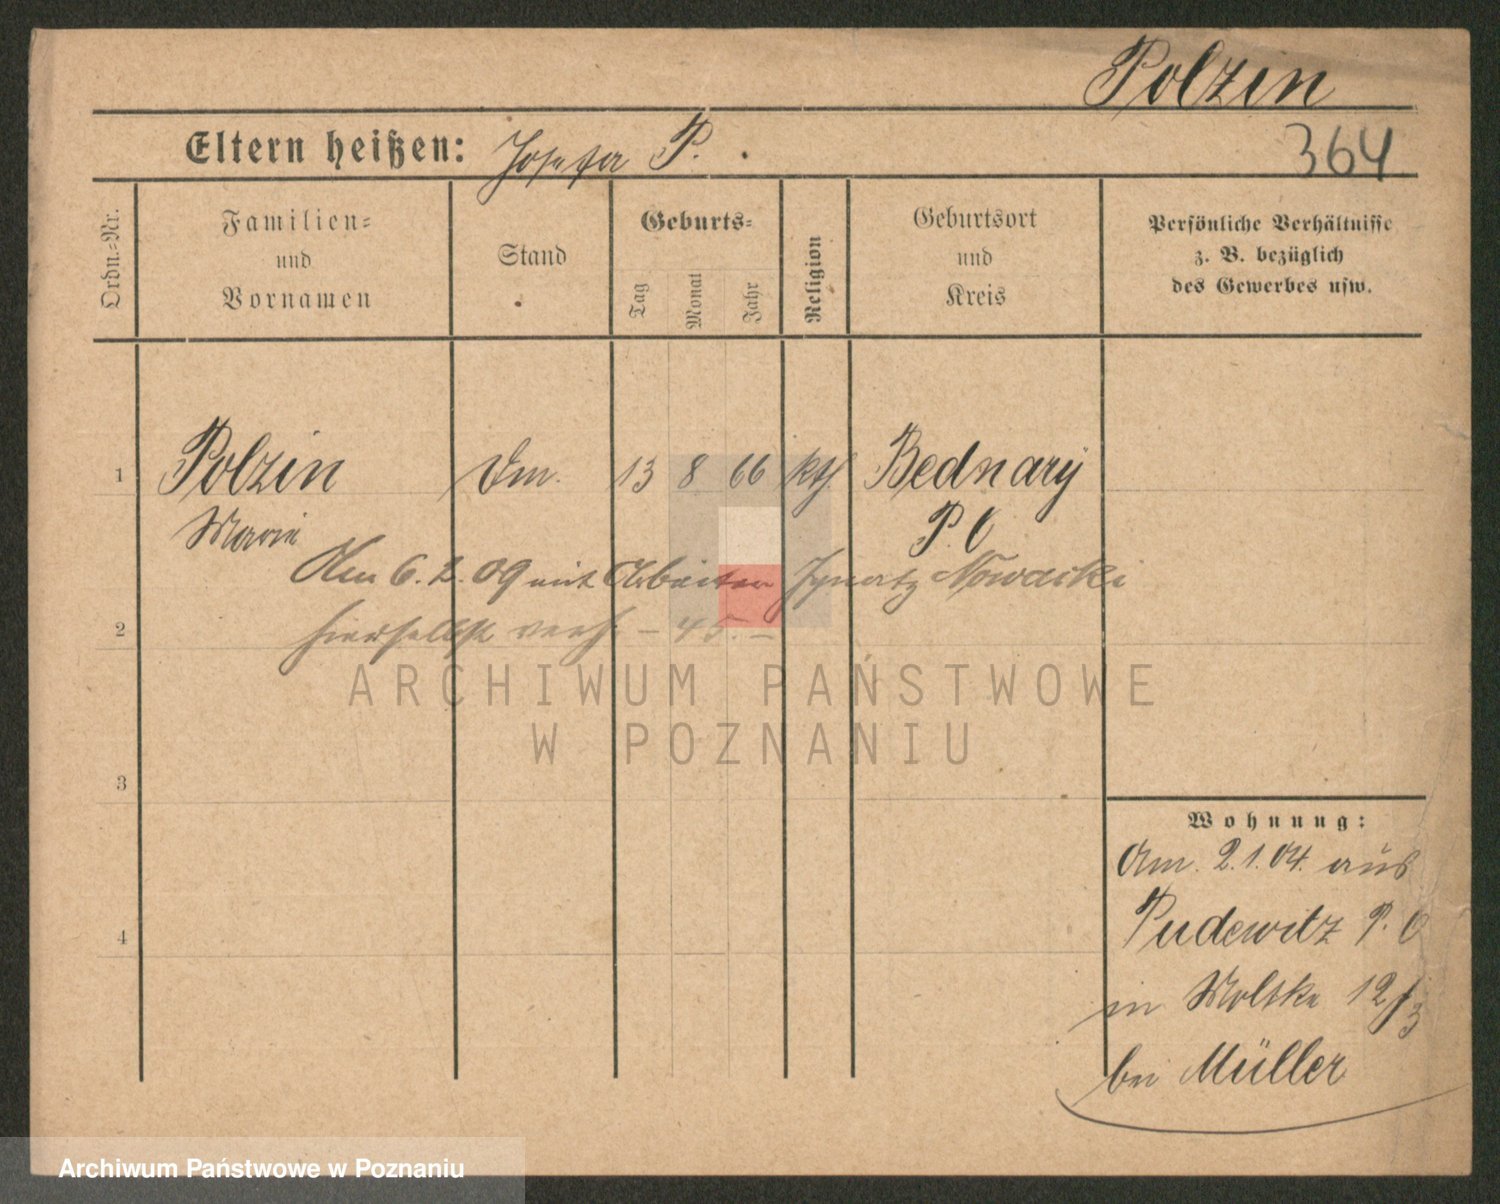 Polzin
Eltern heißen: Josefa P.
364
Ordn.-Nr.
Familien-
und
Vornamen
Stand
Geburts-
Tag
Monat
Jahr
Religion
Geburtsort
und
Kreis
Persönliche Verhältnisse
z. B. bezüglich
des Gewerbes usw.
1 Polzin Dm. 13 8 66 kth. Bednary
Marie P. O
Am 6. 2. 09 mit Arbeiter Ignatz Nowacki
2
hierselbst verh.
ARCHIWUM PAŃSTWOWE
W POZNANIU
3
Wohnung:
Am 2.1.04. aus
4
Pudewitz P. O
in Moltke 12/3
bei Müller
Archiwum Państwowe w Poznaniu